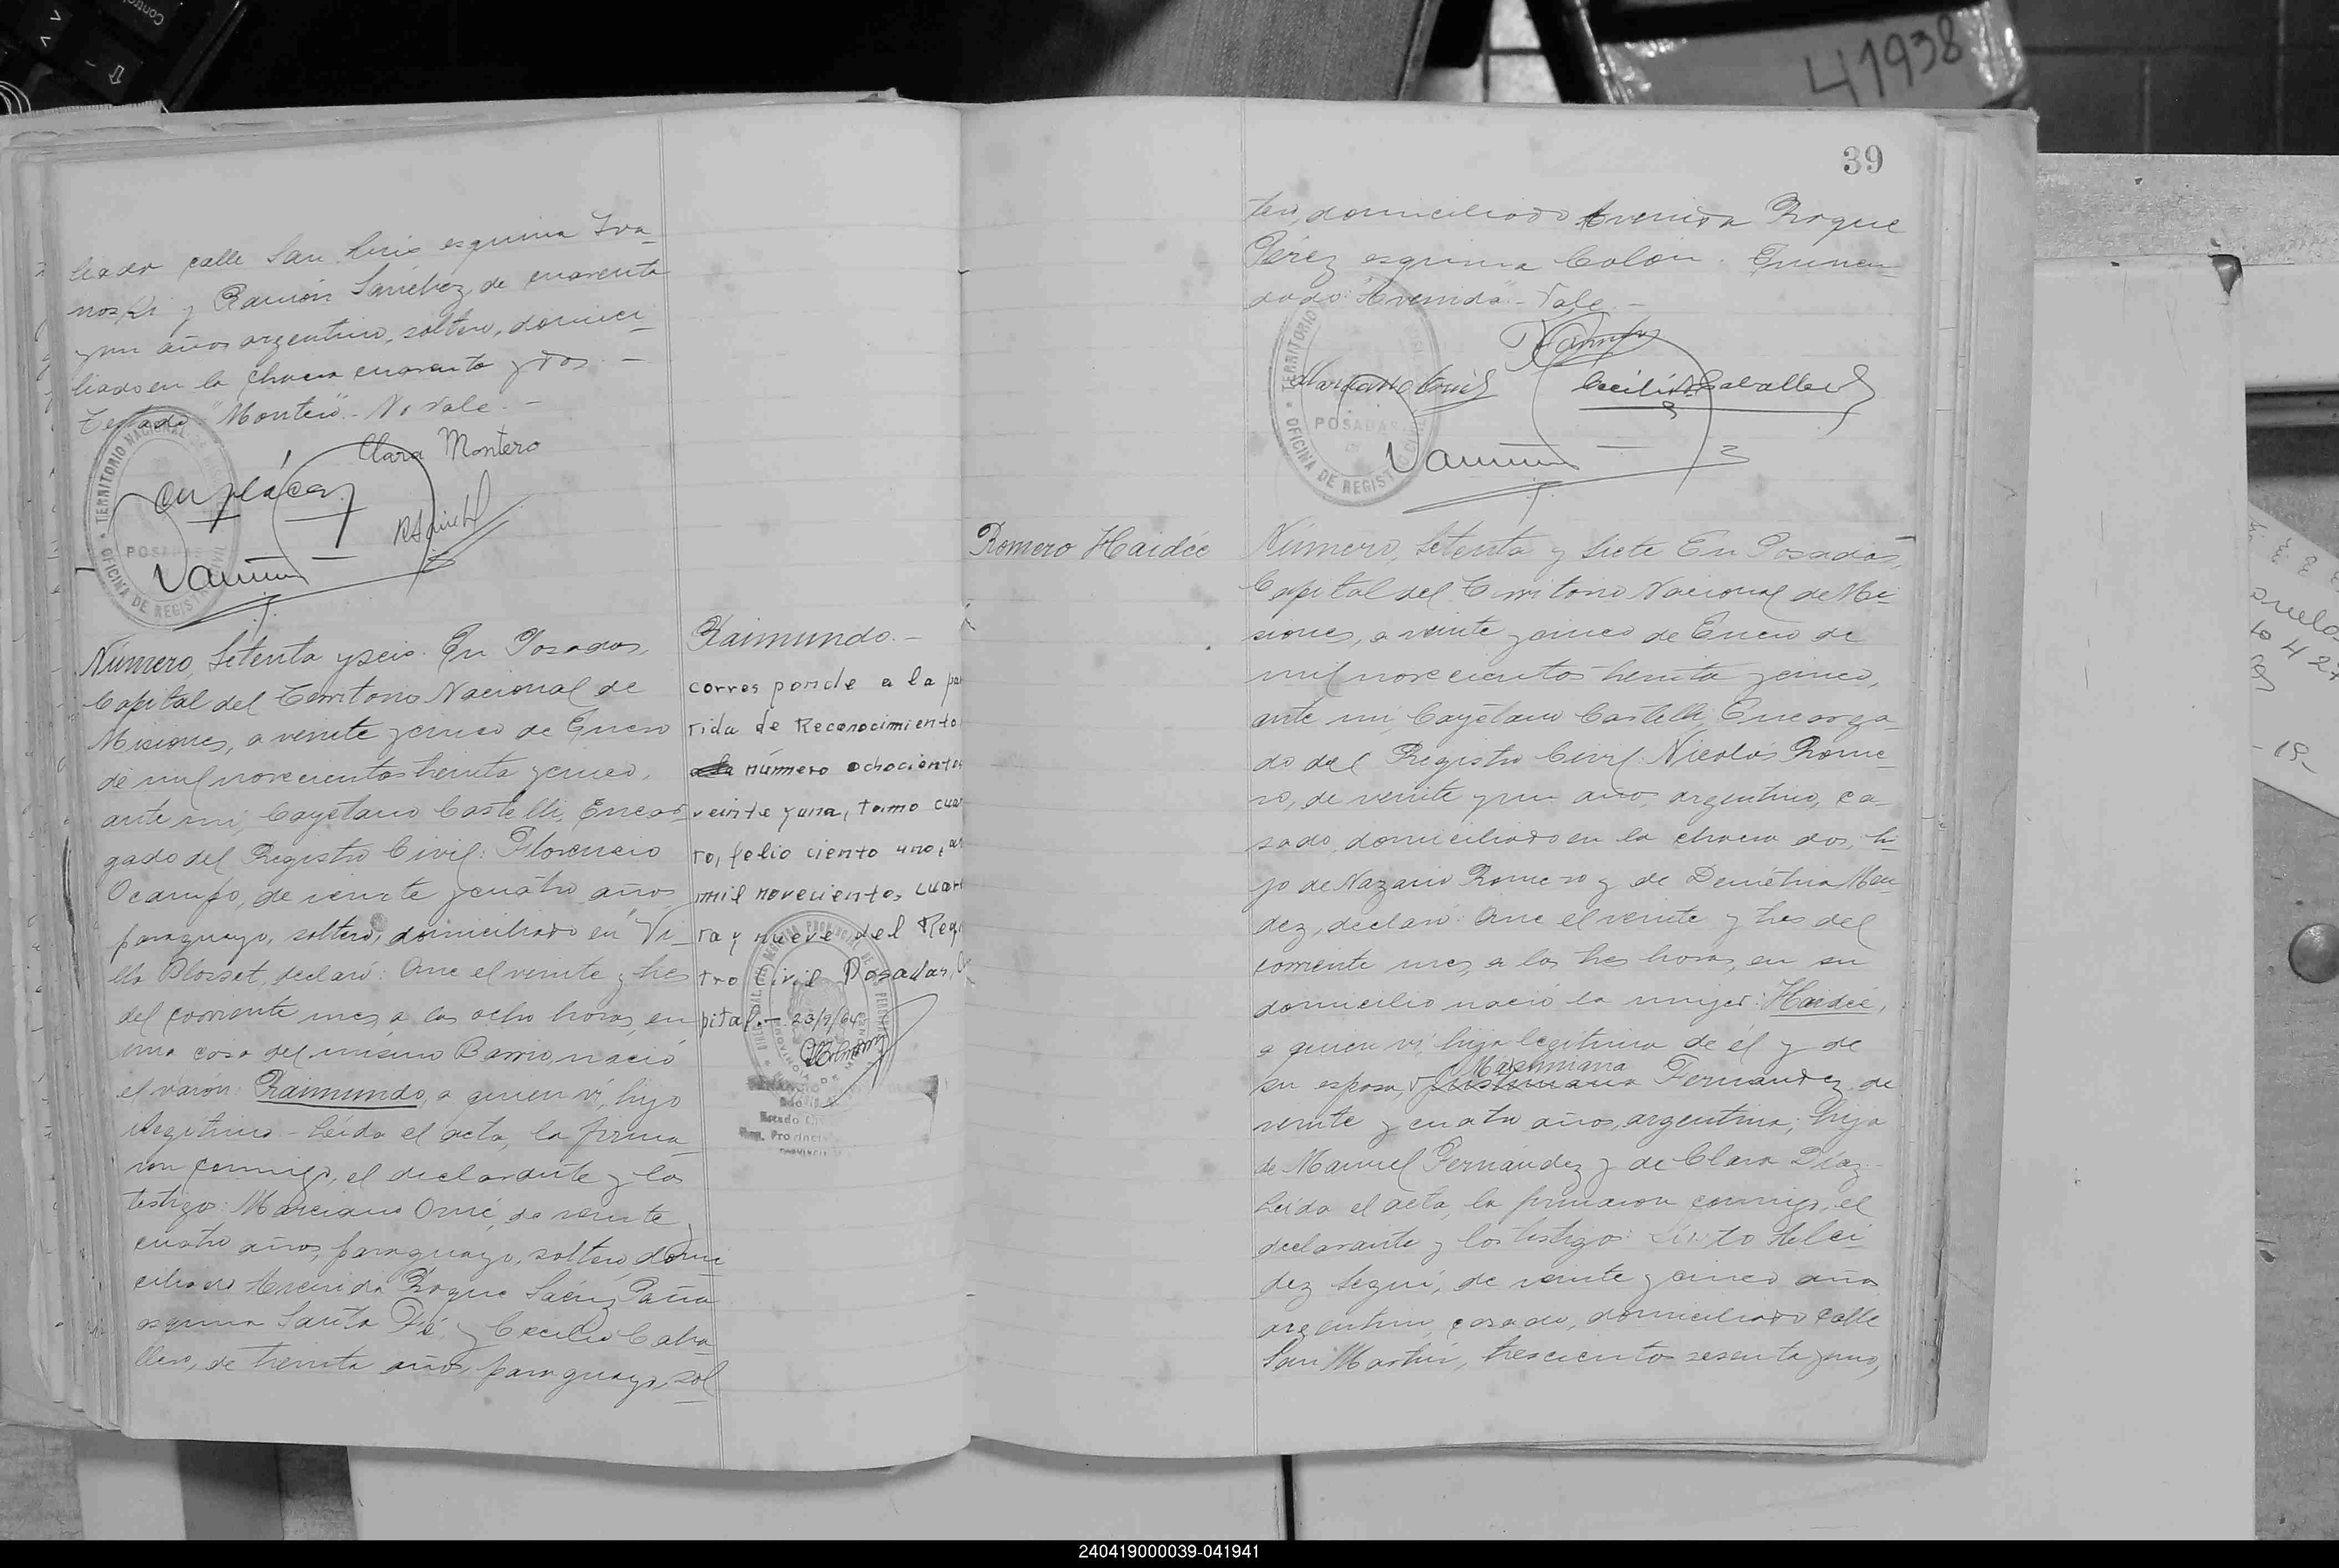 41938
liado calle San Luis esquina Iva-
noski y Ramón Sánchez, de cuarenta
y un años argentino, soltero, domici-
liado en la chacra cuarenta y dos.-
Testado "Montero" - No vale.-
Clara Montero
TERRITORIO NACIONAL DE
POSADAS
OFICINA DE REGISTRO CIVIL
Número, Setenta y seis. En Posadas,
Capital del Territorio Nacional de
Misiones, a veinte y cinco de Enero
de mil novecientos treinta y cinco,
ante mi, Cayetano Castelli, Encar-
gado del Registro Civil: Florencio
Ocampo, de veinte y cuatro años
paraguayo, soltero, domiciliado en Vi-
lla Blosset, declaró: Que el veinte y tres
del corriente mes, a las ocho horas, en
una casa del mismo Barrio, nació
el varón: Raimundo, a quien ví, hijo
ilegítimo.- Leída el acta, la firma-
ron conmigo, el declarante y los
testigos: Marciano Orué, de veinte y
cuatro años, paraguayo, soltero, domi-
ciliado Avenida Roque Sáenz Peña
esquina Santa Fé y Cecilio Caba-
llero, de treinta años, paraguayo, sol-
Raimundo.-
corres ponde a la par
rida de Reconocimiento
número ochocientos
veinte y una, tomo cua
ro, folio ciento uno, a
mil novecientos cuar
ra y nueve del Reg
tro Civil Posadas, C
pital.- 23/9/64
39
tero, domiciliado Avenida Roque
Pérez esquina Colón. Enmen-
dado: "Avenida" - Vale.-
TERRITORIO
POSADAS
OFICINA DE REGISTRO CIVIL
Cecilio Caballero
Romero Haidée
Número, Setenta y Siete En Posadas,
Capital del Territorio Nacional de Mi-
siones, a veinte y cinco de Enero de
mil novecientos treinta y cinco,
ante mi, Cayetano Castelli, Encarga-
do del Registro Civil: Nicolás Rome-
ro, de veinte y un años, argentino, ca-
sado, domiciliado en la chacra dos, hi-
jo de Nazario Romero y de Demétria Men-
dez, declaró: Que el veinte y tres del
corriente mes, a las tres horas, en su
domicilio nació la mujer: Haidée,
a quien ví, hija legítima de él y de
Maximiana
su esposa, Fernandez, de
veinte y cuatro años, argentina; hija
de Manuel Fernández y de Clara Díaz.-
Leída el acta, la firmaron conmigo, el
declarante y los testigos: Sixto Alci-
dez Seguí, de veinte y cinco años
argentino, casado, domiciliado calle
San Martín, trescientos sesenta y uno,
240419000039-041941